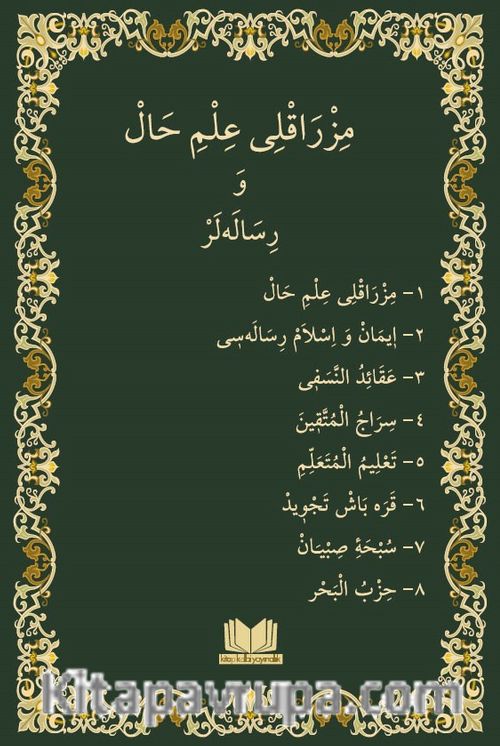 مِزْرَاقْلِى عِلْمِ حَالْ
وَ
رِسَالَەلَرْ
١- مِزْرَاقْلِى عِلْمِ حَالْ
٢- اِيمَانْ وَ اِسْلَامْ رِسَالَەسِى
٣- عَقَائِدُ النَّسَفِى
٤- سِرَاجُ الْمُتَّقِينَ
٥- تَعْلِيمُ الْمُتَعَلِّمِ
٦- قَرَه بَاشْ تَجْوِيدْ
٧- سُبْحَۀِ صِبْيَانْ
٨- حِزْبُ الْبَحْر
kitap kalbi yayıncılık
kitapavrupa.com